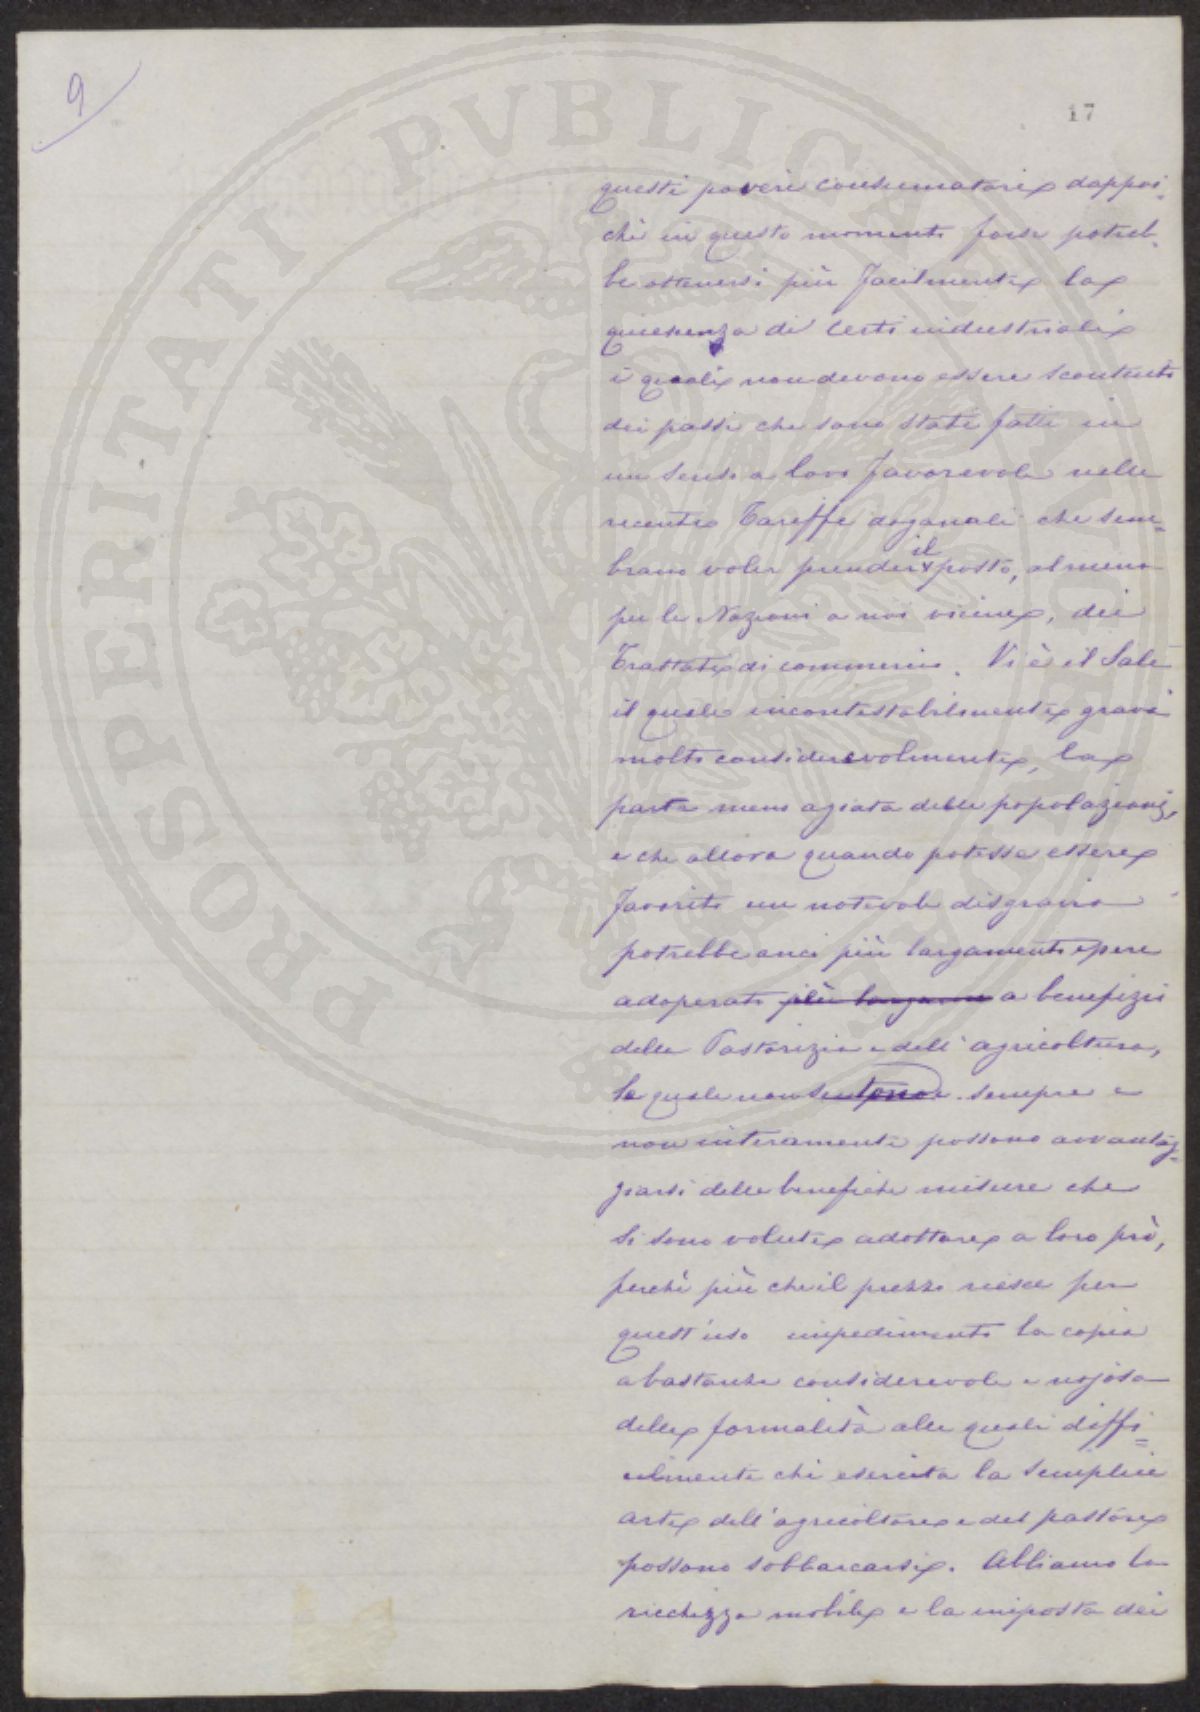 9
17
questi poveri consumatori dappoi-
chè in questo momento forse potreb-
be ottenersi più facilmente la
quiescenza di certi industriali
i quali non devono essere scontenti
dei passi che sono stati fatti in
un senso a loro favorevole nelle
recenti Tariffe doganali che sem=
brano voler prendere il posto, almeno
per le Nazioni a noi vicine, dei
Trattati di commercio. Vi è il Sale
il quale incontestabilmente grava
molto considerevolmente, la
parte meno agiata delle popolazioni,
e che allora quando potesse essere
favorito un notevole disgravio
potrebbe anci più largamente essere
adoperato più largame a benefizio
della Pastorizia e dell'agricoltura,
le quale non sempre e
non interamente possono avvantag=
giarsi delle benefiche misure che
si sono volute adottare a loro prò,
perchè più che il prezzo riesce per
quest'uso impedimento la copia
abastanza considerevole e nojosa
delle formalità alle quali diffi=
cilmente chi esercita la semplice
arte dell'agricoltore e del pastore
possono sobbarcarsi. Abbiamo la
ricchezza mobile e la imposta dei
PROSPERITATI PVBLICAE